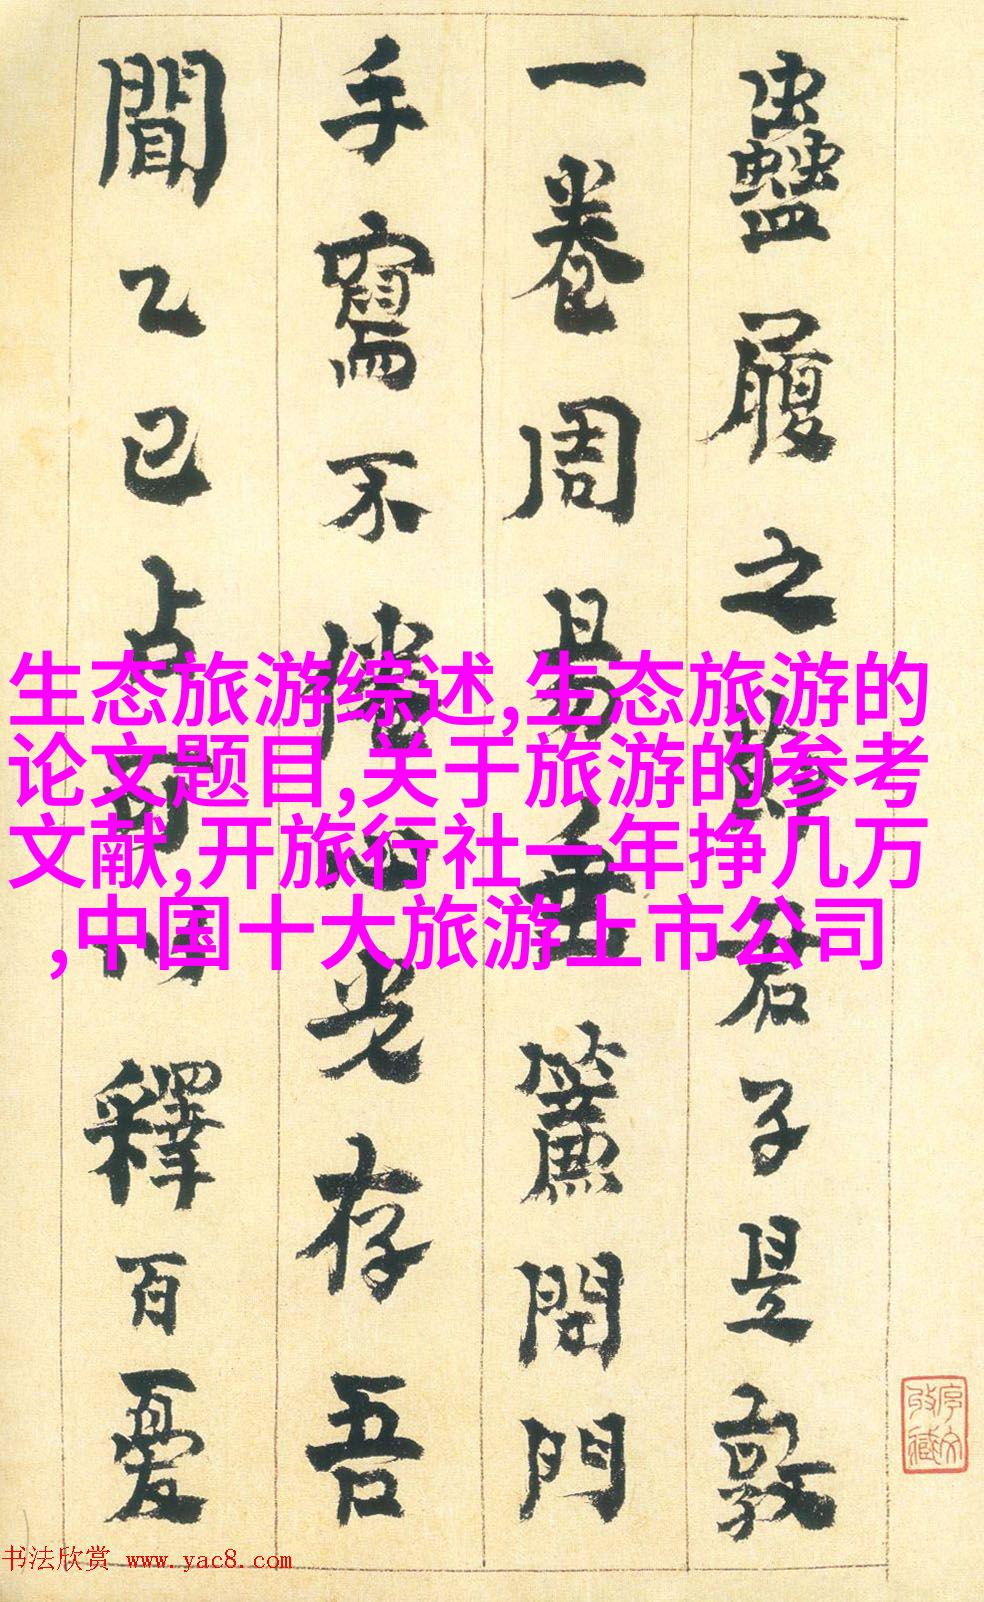 蠱履之君子是敦
一卷周易垂簾門
手寫不光存吾
聞乙已占可釋百憂
生态旅游综述,生态旅游的
论文题目,关于旅游的参考
文献,开旅行社一年挣几万
,中国十大旅游上市公司
书法欣赏 www.yac8.com